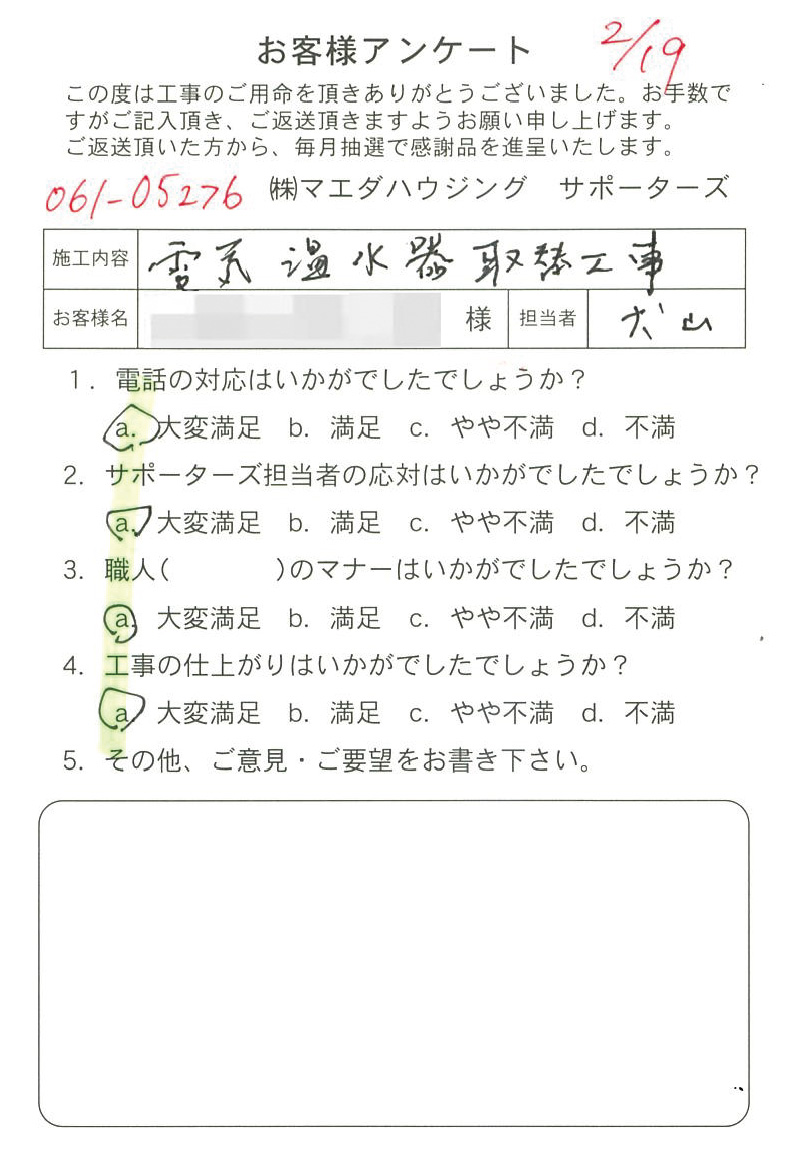 お客様アンケート
2/19
この度は工事のご用命を頂きありがとうございました。お手数で
すがご記入頂き、ご返送頂きますようお願い申し上げます。
ご返送頂いた方から、毎月抽選で感謝品を進呈いたします。
061-05276 ㈱マエダハウジング サポーターズ
施工内容 電気温水器取替工事
お客様名 様 担当者 犬山
1. 電話の対応はいかがでしたでしょうか？
a. 大変満足 b. 満足 c. やや不満 d. 不満
2. サポーターズ担当者の応対はいかがでしたでしょうか？
a. 大変満足 b. 満足 c. やや不満 d. 不満
3. 職人( )のマナーはいかがでしたでしょうか？
a. 大変満足 b. 満足 c. やや不満 d. 不満
4. 工事の仕上がりはいかがでしたでしょうか？
a. 大変満足 b. 満足 c. やや不満 d. 不満
5. その他、ご意見・ご要望をお書き下さい。